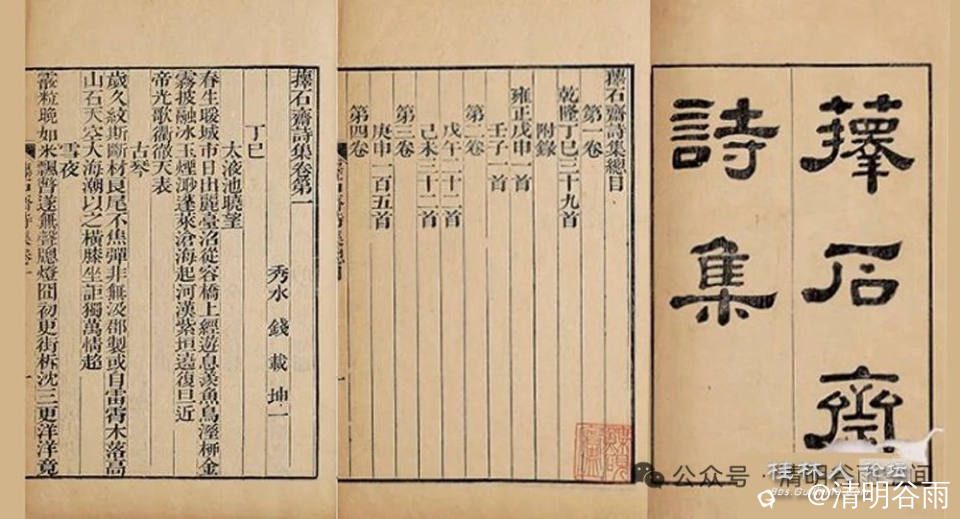 蘀石齋
詩集
蘀石齋詩集總目
第一卷
乾隆丁巳三十九首
附錄
雍正戊申一首
壬子一首
第二卷
戊午二十二首
己未二十二首
第三卷
庚申一百五首
第四卷
蘀石齋詩集卷第一
秀水 錢載 坤一
丁巳
太液池曉望
春生暖城市日出麗臺沼從容橋上經遊息羨魚鳥溼柳金
霧披融冰玉煙渺蓬萊滄海起河漢紫垣遶復旦近
帝光歌衢徹天表
古琴
歲久紋斯斷材良尾不焦彈非無汲郡製或自雷霄木落高
山石天空大海潮以之橫膝坐詎獨萬情超
雪夜
霰粒晚如米飄瞥遂無聲牕燈囧初更街柝沈三更洋洋竟
桂林人论坛
公众号·清明谷雨空间
@清明谷雨